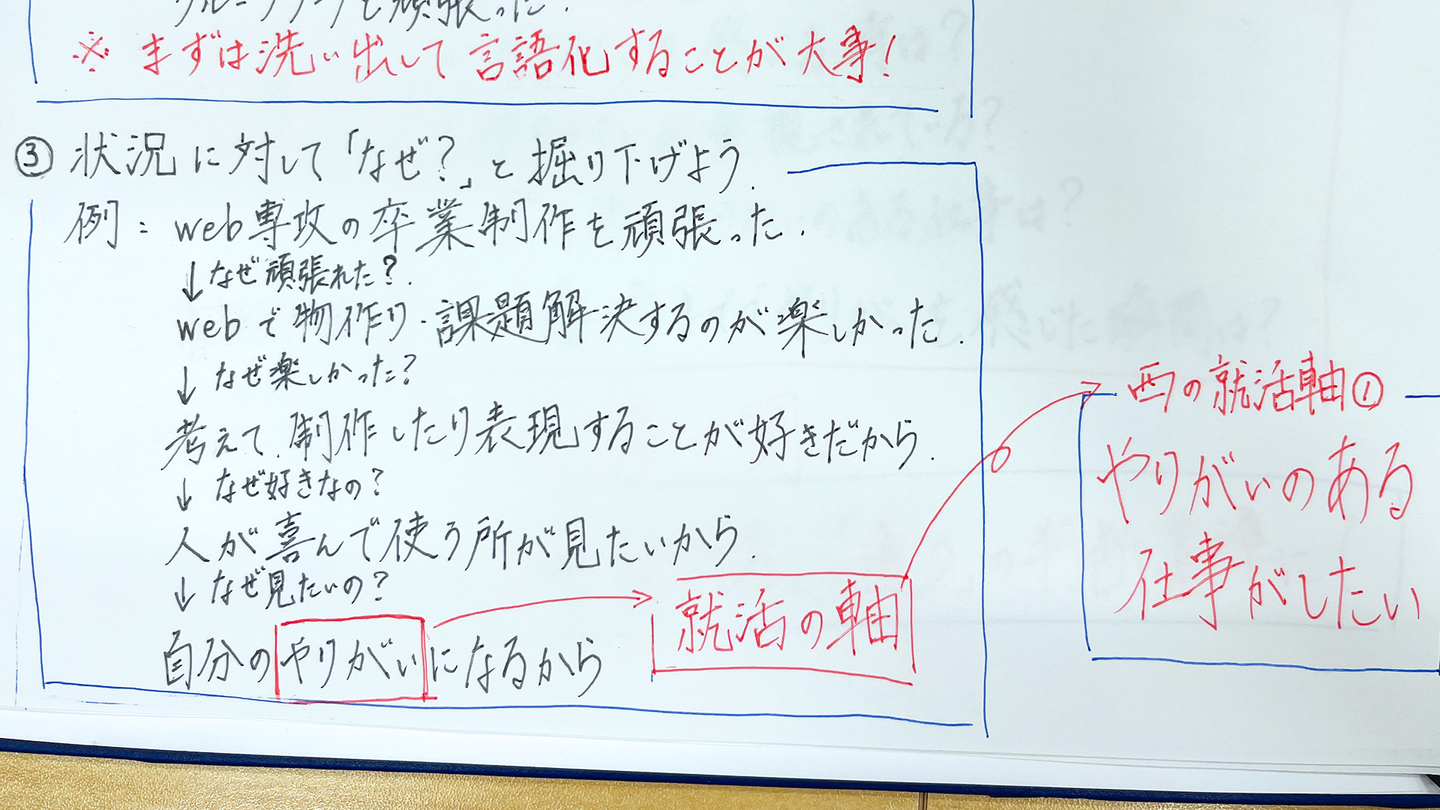 グループワークを頑張った.
※ まずは洗い出して言語化することが大事!
③ 状況に対して「なぜ?」と掘り下げよう.
例: web専攻の卒業制作を頑張った.
↓なぜ頑張れた?
webで物作り・課題解決するのが楽しかった.
↓ なぜ楽しかった?
考えて、制作したり表現することが好きだから.
↓ なぜ好きなの?
人が喜んで使う所が見たいから.
↓ なぜ見たいの?
自分のやりがいになるから
就活の軸
西の就活軸①
やりがいのある
仕事がしたい